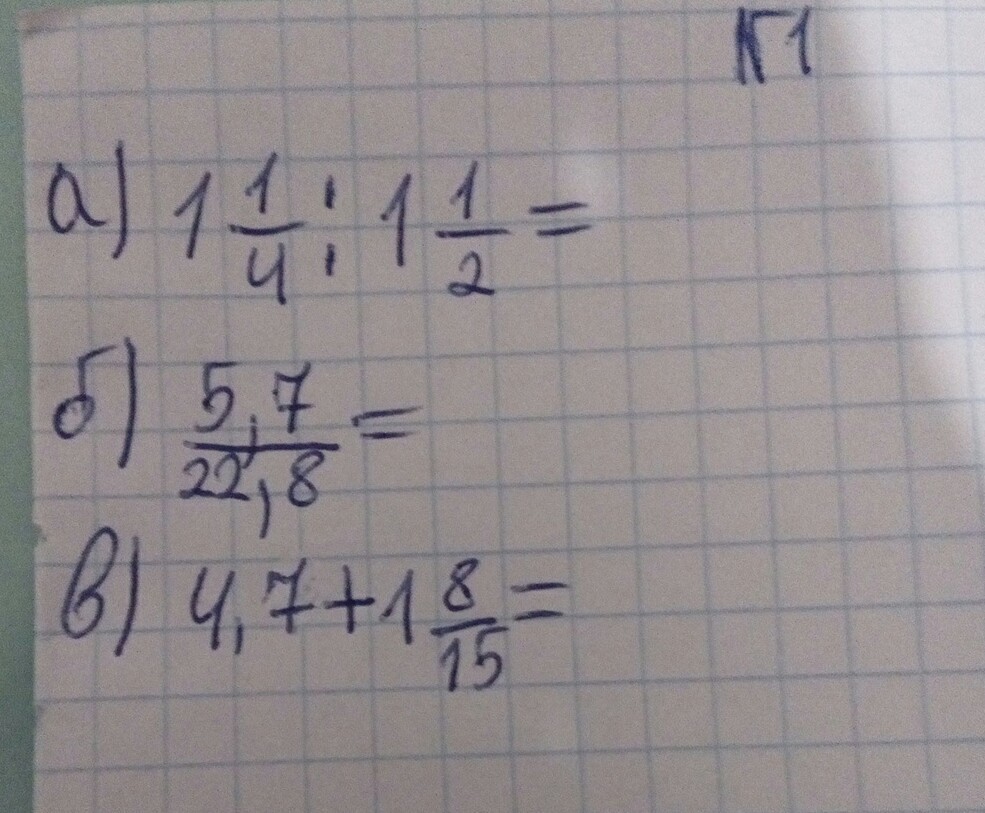 №1
а) 1 1/4 : 1 1/2 =
б) 5,7/22,8 =
в) 4,7+1 8/15 =